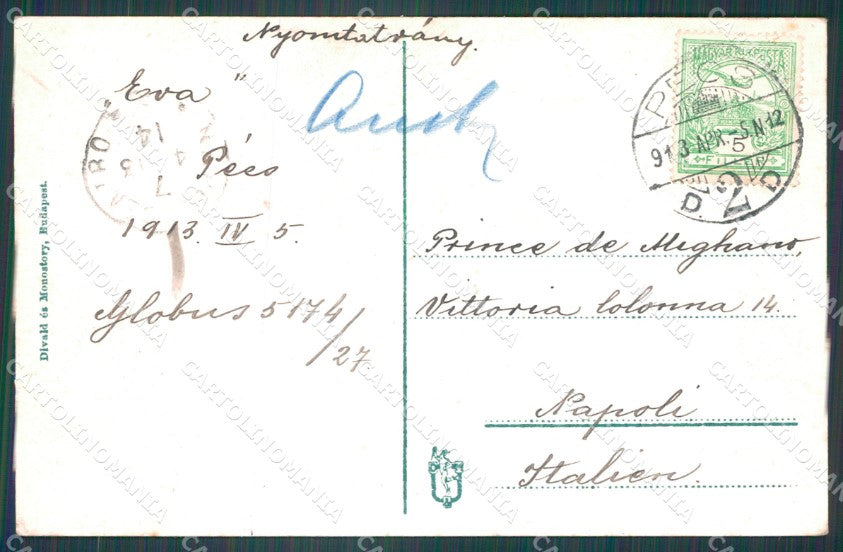 Nyomtatvány.
"Eva"
Pécs
1913. IV 5.
Globus 5174/27
Divald és Monostory, Budapest.
MAGYAR KIR. POSTA
5
FILLÉR
PÉCS
913 APR. -5 N 12
Prince de Meghano,
Vittoria Colonna 14.
Napoli
Italien.
CARTOLINOMANIA